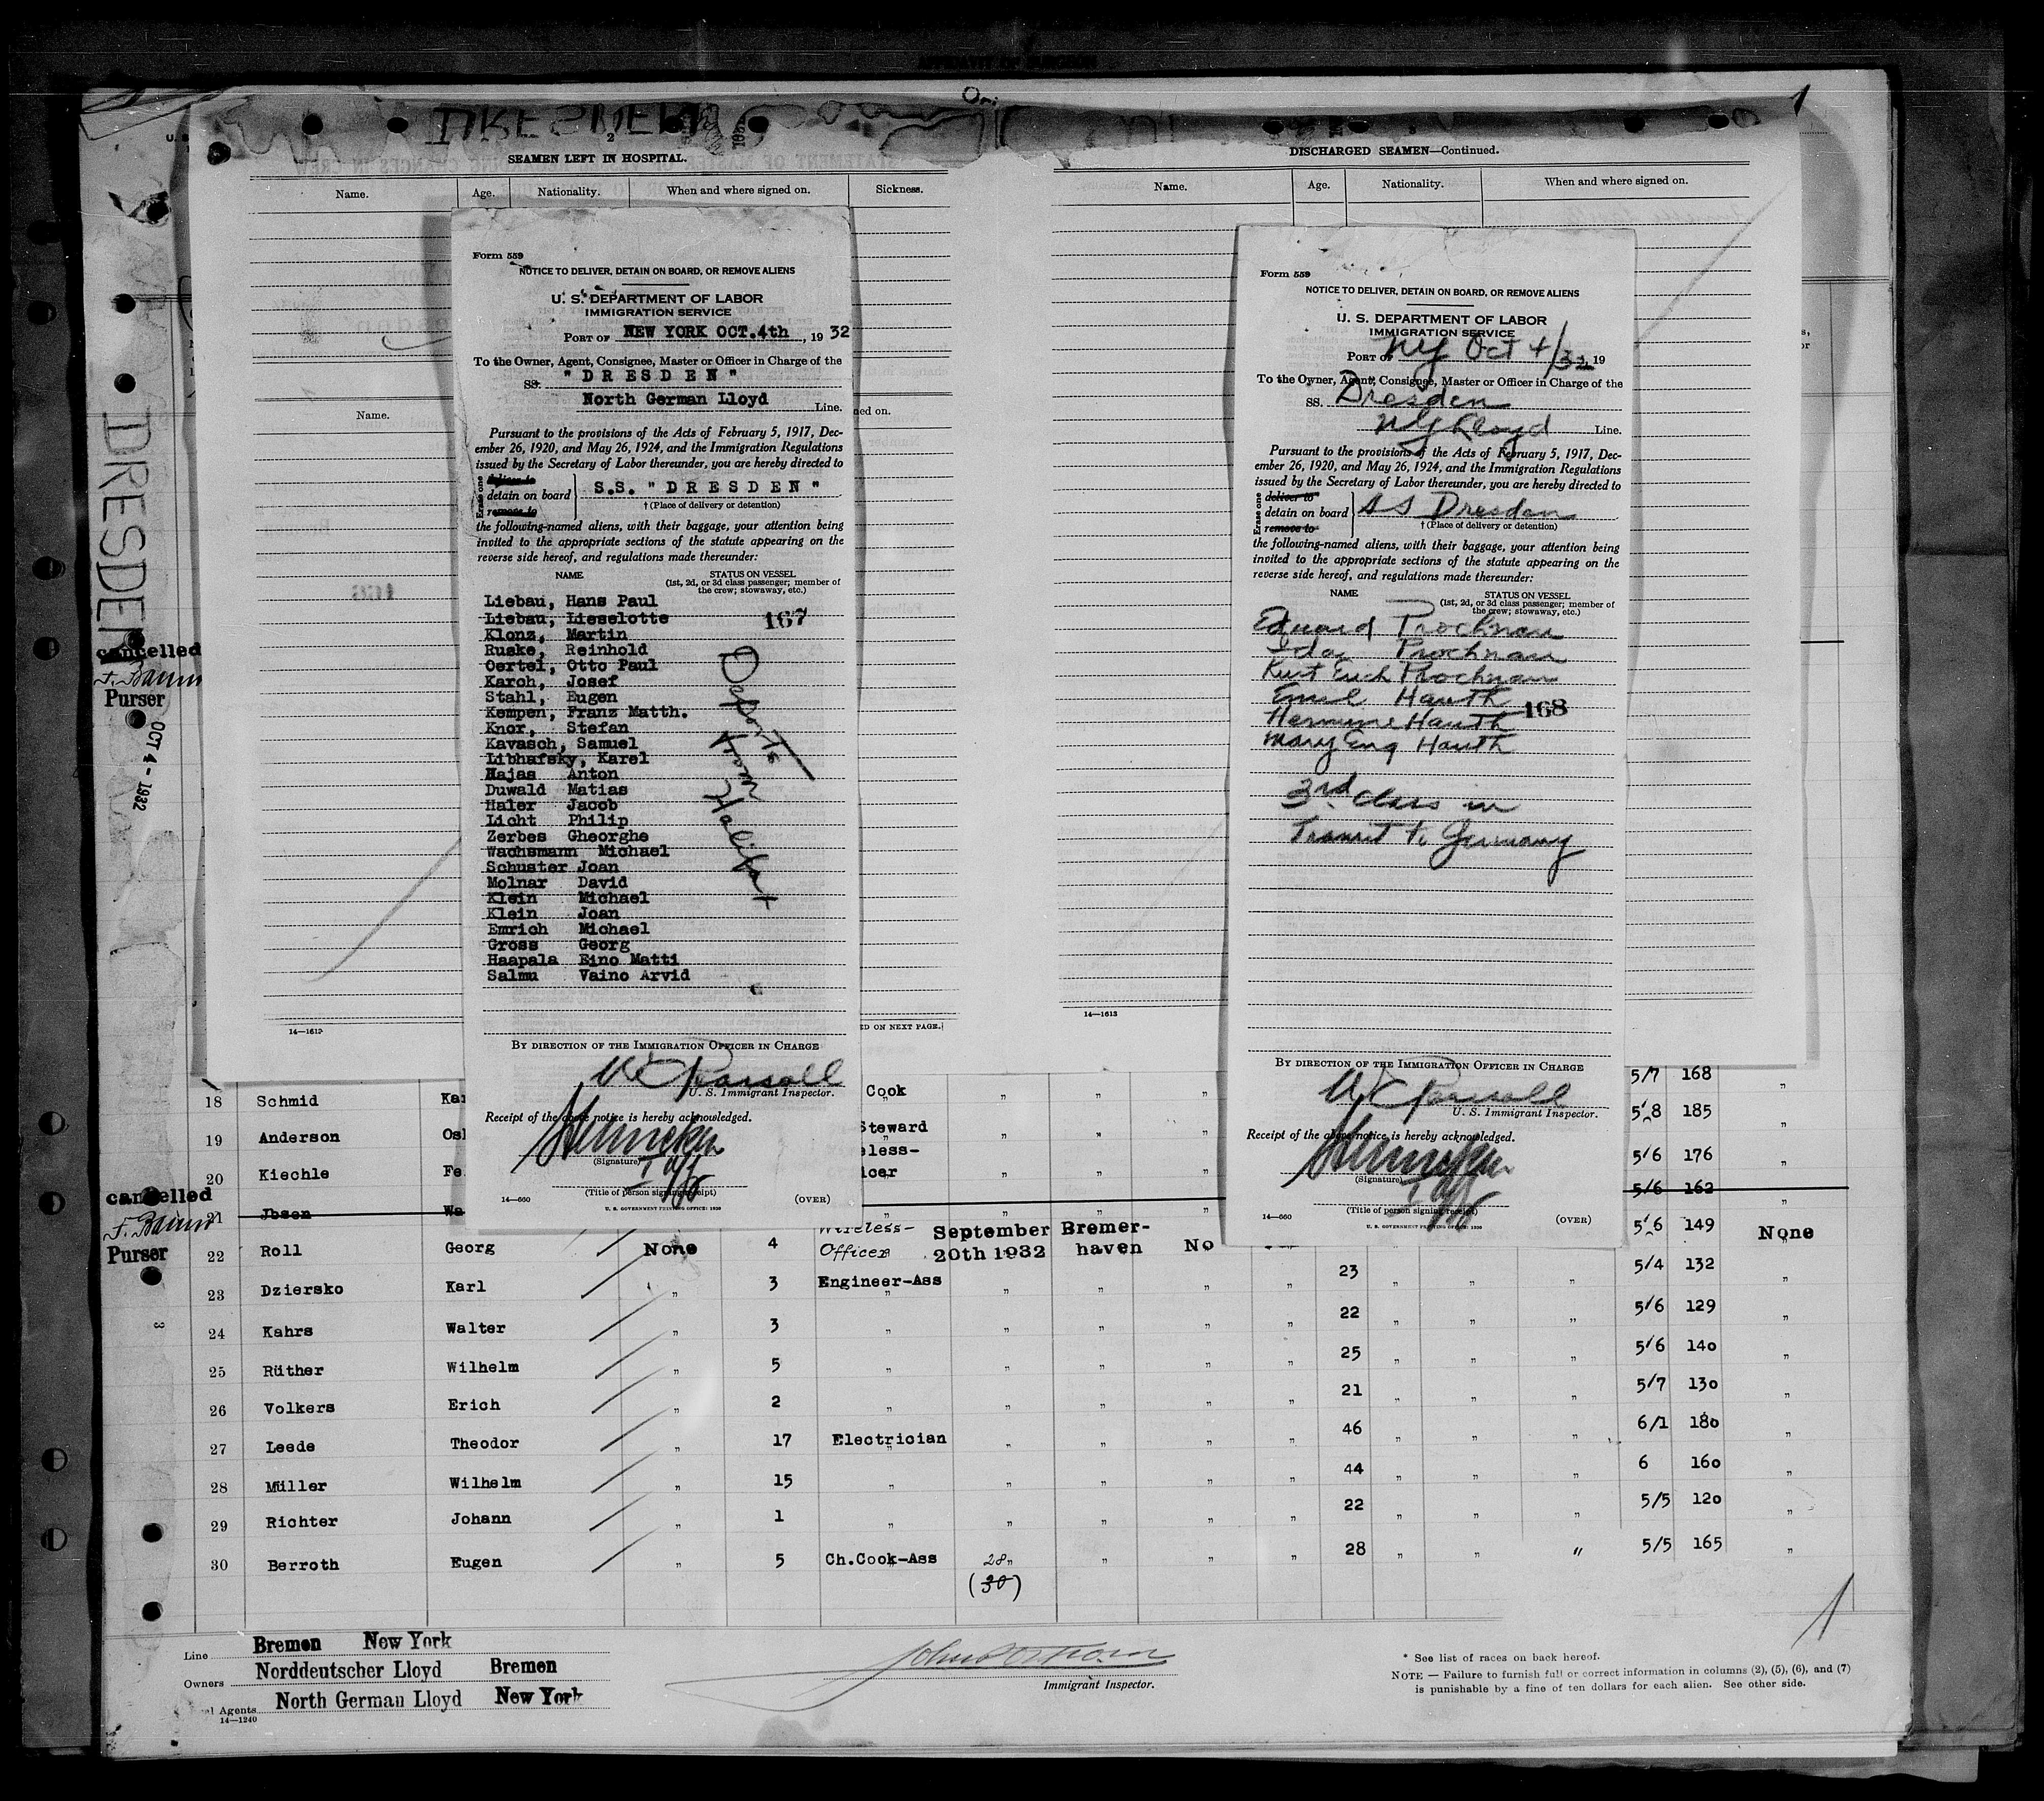 DRESDEN
2
SEAMEN LEFT IN HOSPITAL.
Name. Age. Nationality. When and where signed on. Sickness.
DISCHARGED SEAMEN—Continued.
Name. Age. Nationality. When and where signed on.
1
Name.
14—1613
ED ON NEXT PAGE.
14—1613
DRESDEN
cancelled
Purser
OCT 4 - 1932
Form 559
NOTICE TO DELIVER, DETAIN ON BOARD, OR REMOVE ALIENS
U. S. DEPARTMENT OF LABOR
IMMIGRATION SERVICE
PORT OF NEW YORK OCT.4th, 1932
To the Owner, Agent, Consignee, Master or Officer in Charge of the
SS. "DRESDEN"
North German Lloyd Line.
Pursuant to the provisions of the Acts of February 5, 1917, Dec-
ember 26, 1920, and May 26, 1924, and the Immigration Regulations
issued by the Secretary of Labor thereunder, you are hereby directed to
Erase one
deliver to
detain on board S.S. "DRESDEN"
remove to
† (Place of delivery or detention)
the following-named aliens, with their baggage, your attention being
invited to the appropriate sections of the statute appearing on the
reverse side hereof, and regulations made thereunder:
NAME STATUS ON VESSEL
(1st, 2d, or 3d class passenger; member of
the crew; stowaway, etc.)
Liebau, Hans Paul
Liebau, Lieselotte 167
Klonz, Martin
Ruske, Reinhold
Oertel, Otto Paul
Karch, Josef
Stahl, Eugen
Kempen, Franz Matth.
Knor, Stefan
Kavasch, Samuel
Libhafsky, Karel
Hajas Anton
Duwald Matias
Haler Jacob
Licht Philip
Zerbes Gheorghe
Wachsmann Michael
Schuster Joan
Molnar David
Klein Michael
Klein Joan
Emrich Michael
Gross Georg
Haapala Eino Matti
Salmu Vaino Arvid
Deports
from Halifax
BY DIRECTION OF THE IMMIGRATION OFFICER IN CHARGE
U. S. Immigrant Inspector.
Receipt of the above notice is hereby acknowledged.
(Signature)
(Title of person signing receipt)
14—660 (OVER)
U. S. GOVERNMENT PRINTING OFFICE: 1930
Form 559
NOTICE TO DELIVER, DETAIN ON BOARD, OR REMOVE ALIENS
U. S. DEPARTMENT OF LABOR
IMMIGRATION SERVICE
PORT OF NY Oct 4/32, 19
To the Owner, Agent, Consignee, Master or Officer in Charge of the
SS. Dresden
NG Lloyd Line.
Pursuant to the provisions of the Acts of February 5, 1917, Dec-
ember 26, 1920, and May 26, 1924, and the Immigration Regulations
issued by the Secretary of Labor thereunder, you are hereby directed to
Erase one
deliver to
detain on board SS Dresden
remove to
† (Place of delivery or detention)
the following-named aliens, with their baggage, your attention being
invited to the appropriate sections of the statute appearing on the
reverse side hereof, and regulations made thereunder:
NAME STATUS ON VESSEL
(1st, 2d, or 3d class passenger; member of
the crew; stowaway, etc.)
Eduard Prochnau
Ida Prochnau
Kurt Erich Prochnau
Emil Hauth
Hermine Hauth 168
Mary Eng Hauth
3rd class in
Transit to Germany
BY DIRECTION OF THE IMMIGRATION OFFICER IN CHARGE
U. S. Immigrant Inspector.
Receipt of the above notice is hereby acknowledged.
(Signature)
(Title of person signing receipt)
14—660 (OVER)
U. S. GOVERNMENT PRINTING OFFICE: 1930
5/7 168 "
18 Schmid Cook " " " 5/8 185 "
19 Anderson Steward " " " 5/6 176 "
20 Kiechle " " " 5/6 162 "
cancelled
Purser
21 Jbsen
22 Roll Georg None 4 Wireless-Officer September 20th 1932 Bremer-haven No 5/6 149 None
23 Dziersko Karl " 3 Engineer-Ass " " " " 23 " " " 5/4 132 "
24 Kahrs Walter " 3 " " " " " 22 " " " 5/6 129 "
25 Rüther Wilhelm " 5 " " " " " 25 " " " 5/6 140 "
26 Volkers Erich " 2 " " " " " 21 " " " 5/7 130 "
27 Leede Theodor " 17 Electrician " " " " 46 " " " 6/1 180 "
28 Müller Wilhelm " 15 " " " " " 44 " " " 6 160 "
29 Richter Johann " 1 " " " " " 22 " " " 5/5 120 "
30 Berroth Eugen " 5 Ch.Cook-Ass 28 " " " " 28 " " " 5/5 165 "
(30)
Line Bremen New York
Owners Norddeutscher Lloyd Bremen
Agents North German Lloyd New York
14—1240
Immigrant Inspector.
* See list of races on back hereof.
NOTE — Failure to furnish full or correct information in columns (2), (5), (6), and (7)
is punishable by a fine of ten dollars for each alien. See other side.